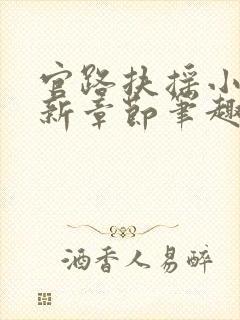 官路扶摇小
新章节笔趣
酒香人易醉